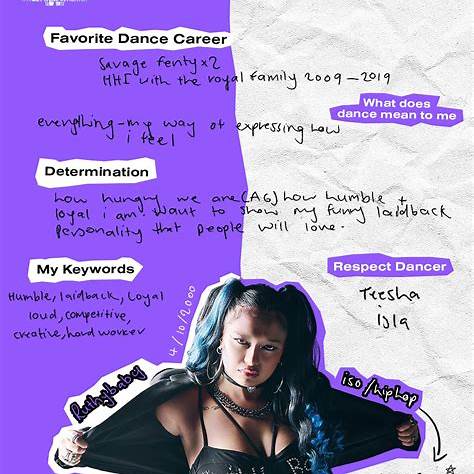 Favorite Dance Career
Savage fenty x2
HHI with the royal family 2009 – 2019
What does
dance mean to me
everything - my way of expressing how
i feel
Determination
how hungry we are (AG) how humble +
loyal i am. want to show my funny laidback
personality that people will love.
My Keywords
Humble, laidback, Loyal
loud, competitive,
creative, hard worker
Respect Dancer
Teesha
Isla
4/10/2000
iso/hiphop